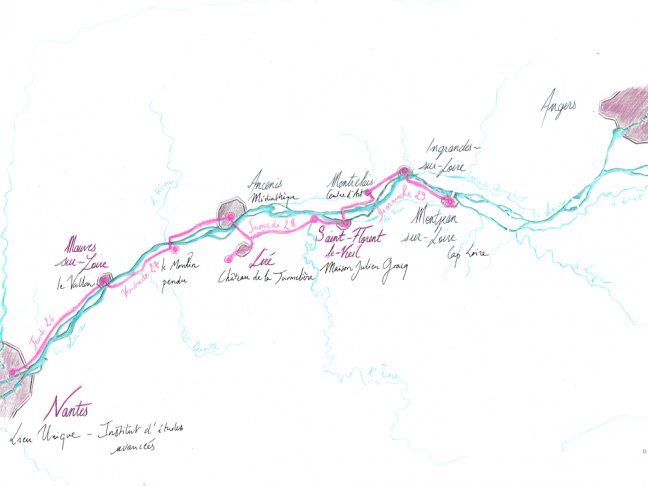 Angers
Ingrandes-
sur-Loire
Montrelais
Centre d'Art
Ancenis
Médiathèque
Dimanche 29
Samedi 28
Montjean
sur-Loire
Cap Loire
Saint-Florent
le-Vieil
Maison Julien Gracq
Liré
Château de la Turmelière
Mauves
sur-Loire
le Vallon
Vendredi 27
le Moulin
pendu
Jeudi 26
la Loire
l'Èvre
Nantes
Lieu Unique - Institut d'études
avancées